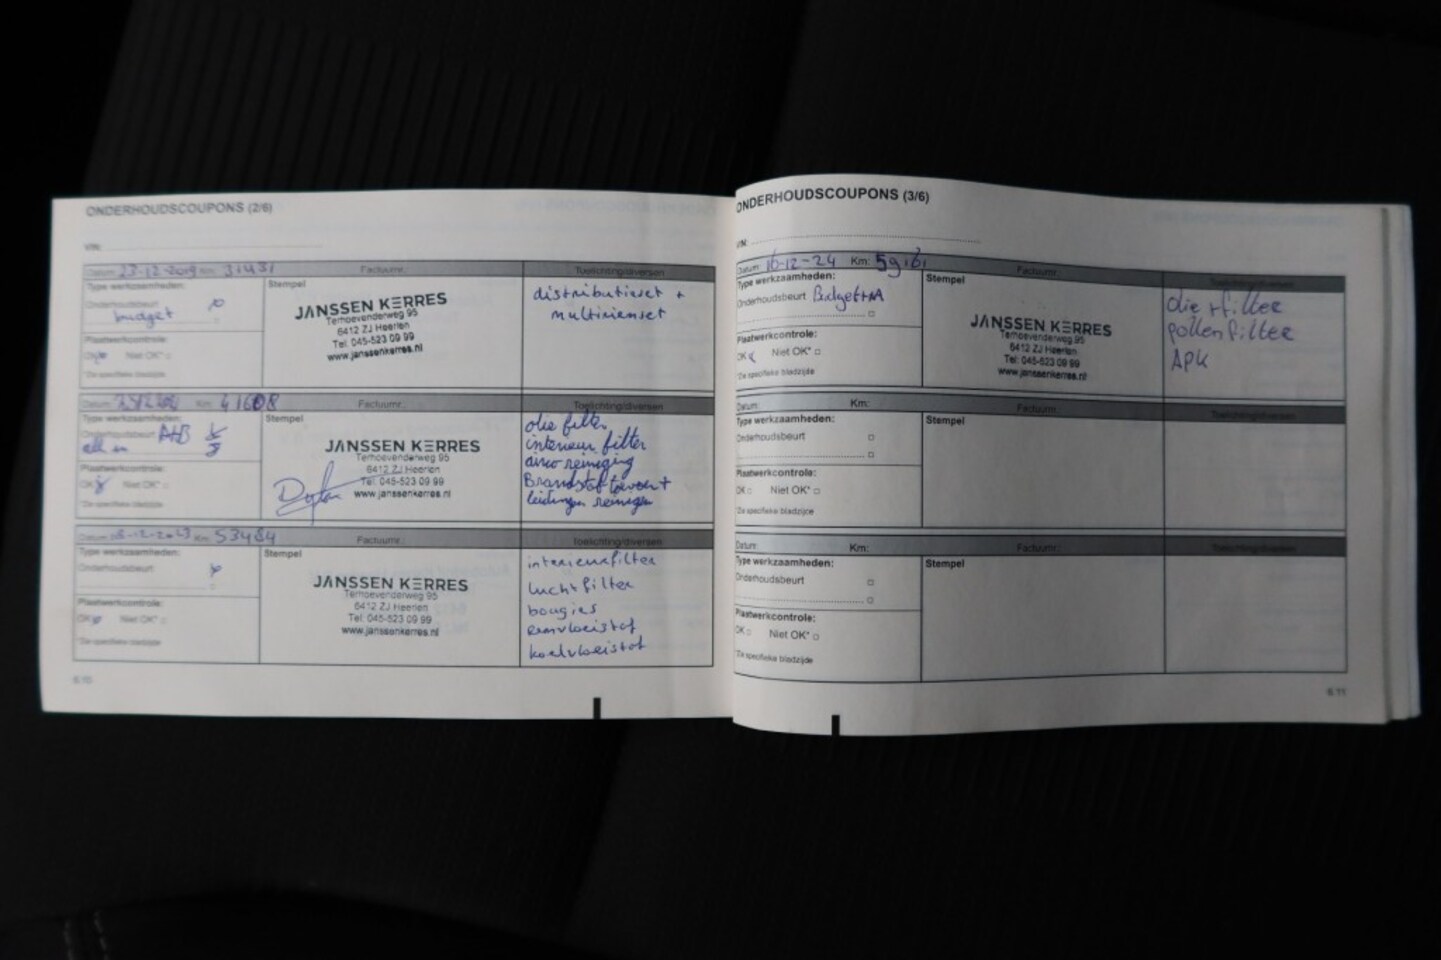 ONDERHOUDSCOUPONS (2/6)
VIN:
Datum: 23-12-2019 Km: 31431 Factuurnr.: Toelichting/diversen
Type werkzaamheden:
Onderhoudsbeurt
budget
Plaatwerkcontrole:
OK Niet OK*
*Zie specifieke bladzijde
Stempel
JANSSEN KERRES
Terhoevenderweg 95
6412 ZJ Heerlen
Tel. 045-523 09 99
www.janssenkerres.nl
distributieset +
multiriemset
Datum: Km: 41608 Factuurnr.: Toelichting/diversen
Type werkzaamheden:
Onderhoudsbeurt
Plaatwerkcontrole:
OK Niet OK*
*Zie specifieke bladzijde
Stempel
JANSSEN KERRES
Terhoevenderweg 95
6412 ZJ Heerlen
Tel. 045-523 09 99
www.janssenkerres.nl
olie filter
interieur filter
airco reiniging
Brandstof toevoer +
leidingen reinigen
Datum: 08-12-2023 Km: 53484 Factuurnr.: Toelichting/diversen
Type werkzaamheden:
Onderhoudsbeurt
Plaatwerkcontrole:
OK Niet OK*
*Zie specifieke bladzijde
Stempel
JANSSEN KERRES
Terhoevenderweg 95
6412 ZJ Heerlen
Tel: 045-523 09 99
www.janssenkerres.nl
interieurfilter
luchtfilter
bougies
remvloeistof
koelvloeistof
6.10
ONDERHOUDSCOUPONS (3/6)
VIN:
Datum: 16-12-24 Km: Factuurnr.: Toelichting/diversen
Type werkzaamheden:
Onderhoudsbeurt Budget+A
Plaatwerkcontrole:
OK Niet OK*
*Zie specifieke bladzijde
Stempel
JANSSEN KERRES
Terhoevenderweg 95
6412 ZJ Heerlen
Tel: 045-523 09 99
www.janssenkerres.nl
olie + filter
pollenfilter
APK
Datum: Km: Factuurnr.: Toelichting/diversen
Type werkzaamheden:
Onderhoudsbeurt
Plaatwerkcontrole:
OK Niet OK*
*Zie specifieke bladzijde
Stempel
Datum: Km: Factuurnr.: Toelichting/diversen
Type werkzaamheden:
Onderhoudsbeurt
Plaatwerkcontrole:
OK Niet OK*
*Zie specifieke bladzijde
Stempel
6.11